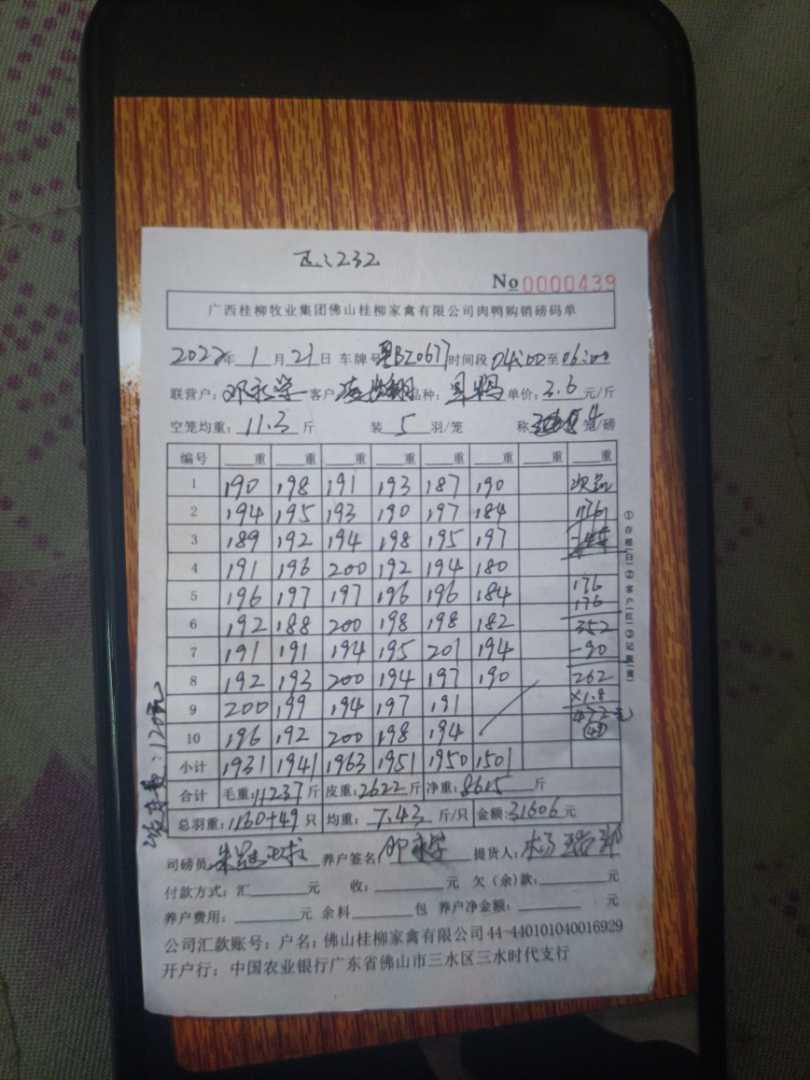 232
No 0000439
广西桂柳牧业集团佛山桂柳家禽有限公司肉鸭购销磅码单
2022年 1月 21日 车牌号 粤BZ0677 时间段 04:00至06:00
联营户: 邓永学 客户 品种: 单价: 3.6 元/斤
空笼均重: 11.3 斤 装 5 羽/笼 称 4 笼/磅
编号 重 重 重 重 重 重 重 重
1 190 198 191 193 187 190 次品
2 194 195 193 190 197 184 176
3 189 192 194 198 195 197
4 191 196 200 192 194 180
5 196 197 197 196 196 184 176
176
6 192 188 200 198 198 182 352
7 191 191 194 195 201 194 -90
8 192 193 200 194 197 190 262
9 200 199 194 197 191 ×1.8
10 196 192 200 198 194 49
小计 1931 1941 1963 1951 1950 1501
合计 毛重: 11237 斤 皮重: 2622 斤 净重: 8615 斤
总羽重: 1160+49 只 均重: 7.43 斤/只 金额: 31606 元
司磅员: 养户签名: 提货人:
付款方式: 汇 元 收: 元 欠(余)款: 元
养户费用: 元 余料 包 养户净金额: 元
公司汇款账号: 户名: 佛山桂柳家禽有限公司 44-440101040016929
开户行: 中国农业银行广东省佛山市三水区三水时代支行
①存根(白)②客户(红)③记账(黄)